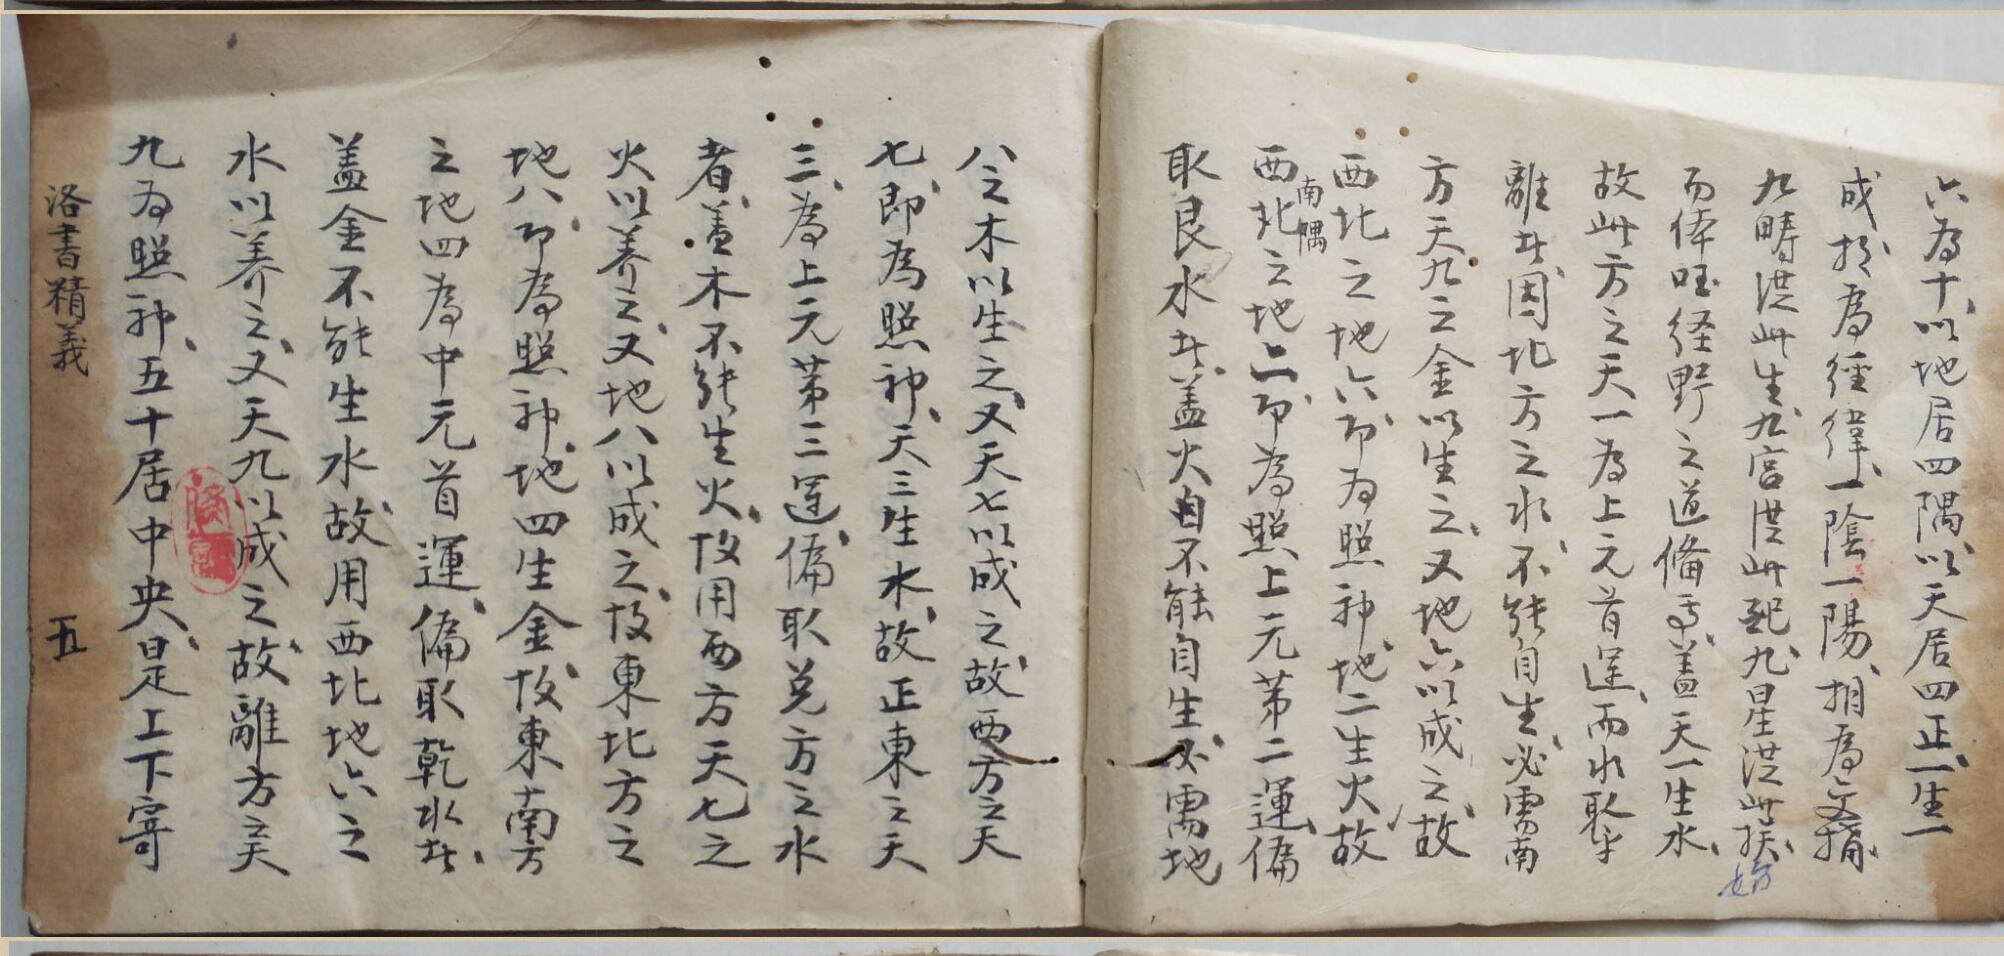 六為十、以地居四隅、以天居四正、一生一
成、於為經緯、一陰一陽、相為交搆、
九疇從此生、九宮從此起、九星從此挨、
而体經野之道備焉、蓋天一生水、
故此方之天一為上元首運、而水取乎
離者、因北方之水、不能自生、必需南
方天九之金以生之、又地六以成之、故
西北之地六、即为照神、地二生火、故
西北之地二、即為照、上元第二運、偏
南隅
取艮水者、蓋火自不能自生、必需地
八之木以生之、又天七以成之、故西方之天
七、即為照神、天三生水、故正東之天
三、為上元第三運、偏取兌方之水
者、蓋木不能生火、故用西方天七之
火以养之、又地八以成之、故東北方之
地八、即為照神、地四生金、故東南方
之地四為中元首運、偏取乾水者、
蓋金不能生水、故用西北地六之
水以养之、又天九以成之、故離方之天
九为照神、五十居中央、是上下寄
洛書精義
五